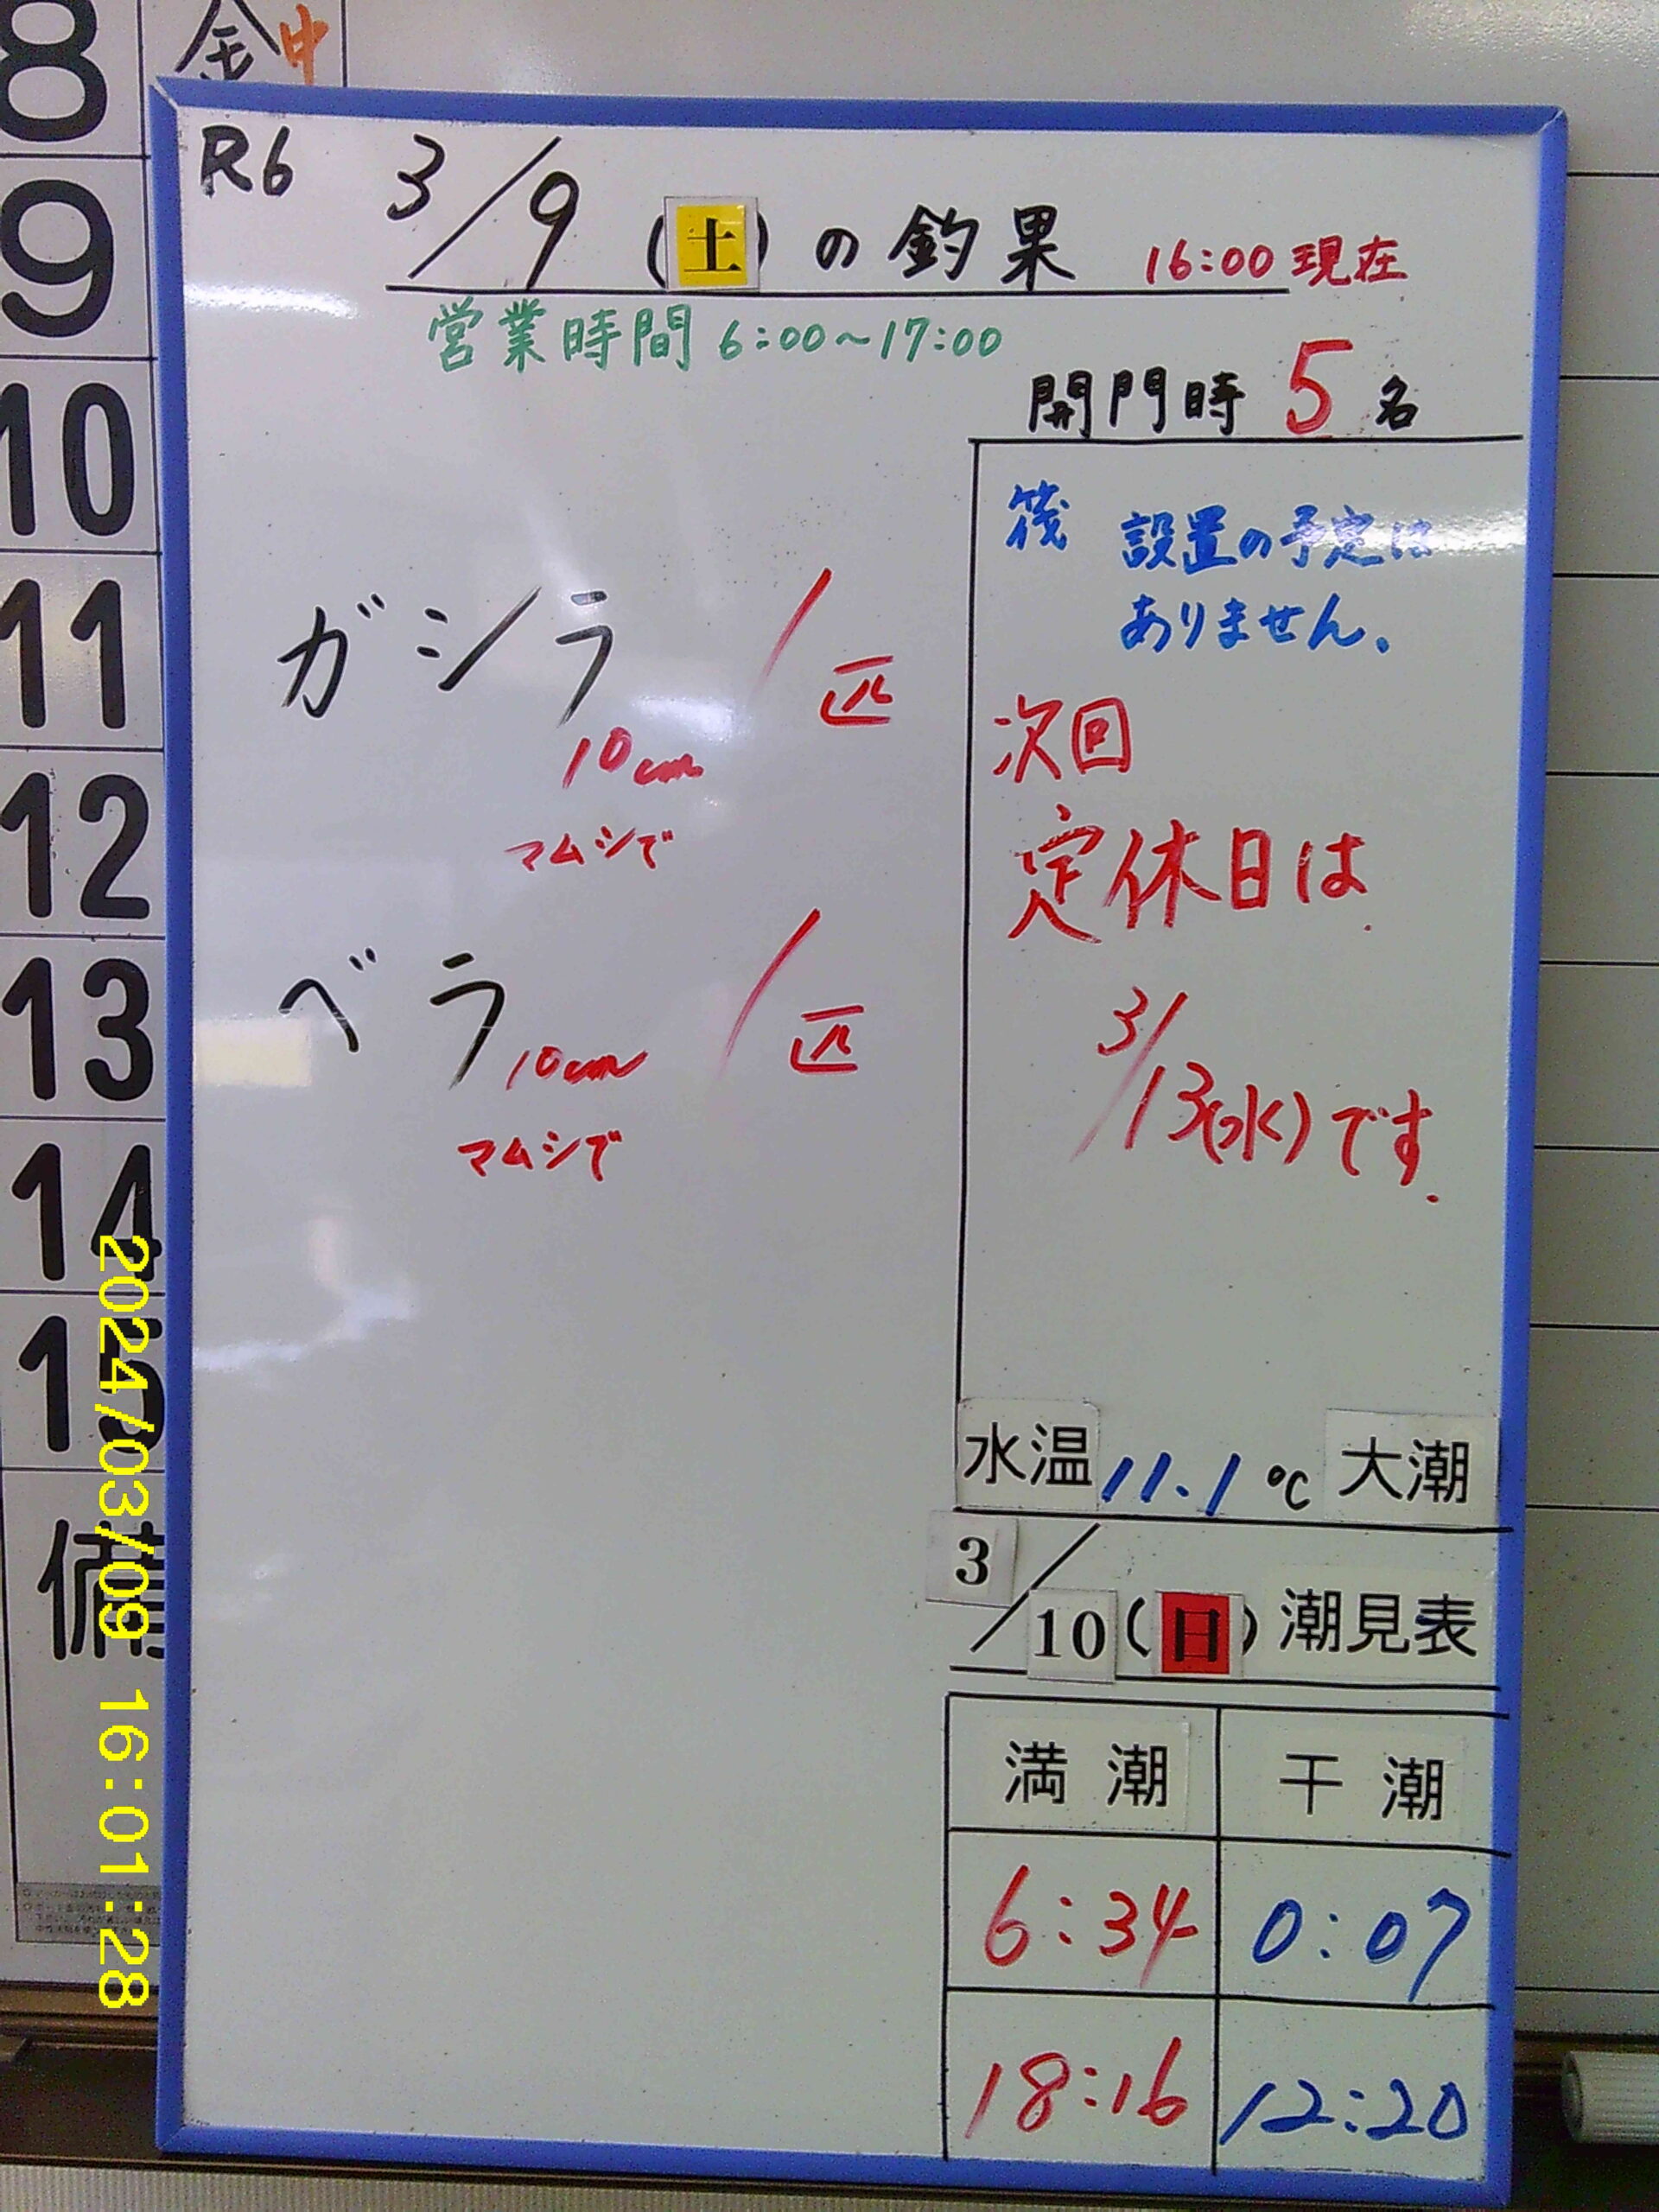 8 金 中
9
10
11
12
13
14
15
備
R6 3/9 (土) の釣果 16:00 現在
営業時間 6:00~17:00
開門時 5 名
ガシラ 1匹
10cm
マムシで
ベラ 1匹
10cm
マムシで
筏 設置の予定は
ありません。
次回
定休日は
3/13(水)です.
水温 11.1 ℃ 大潮
3/10(日)潮見表
満潮 干潮
6:34 0:07
18:16 12:20
2024/03/09 16:01:28